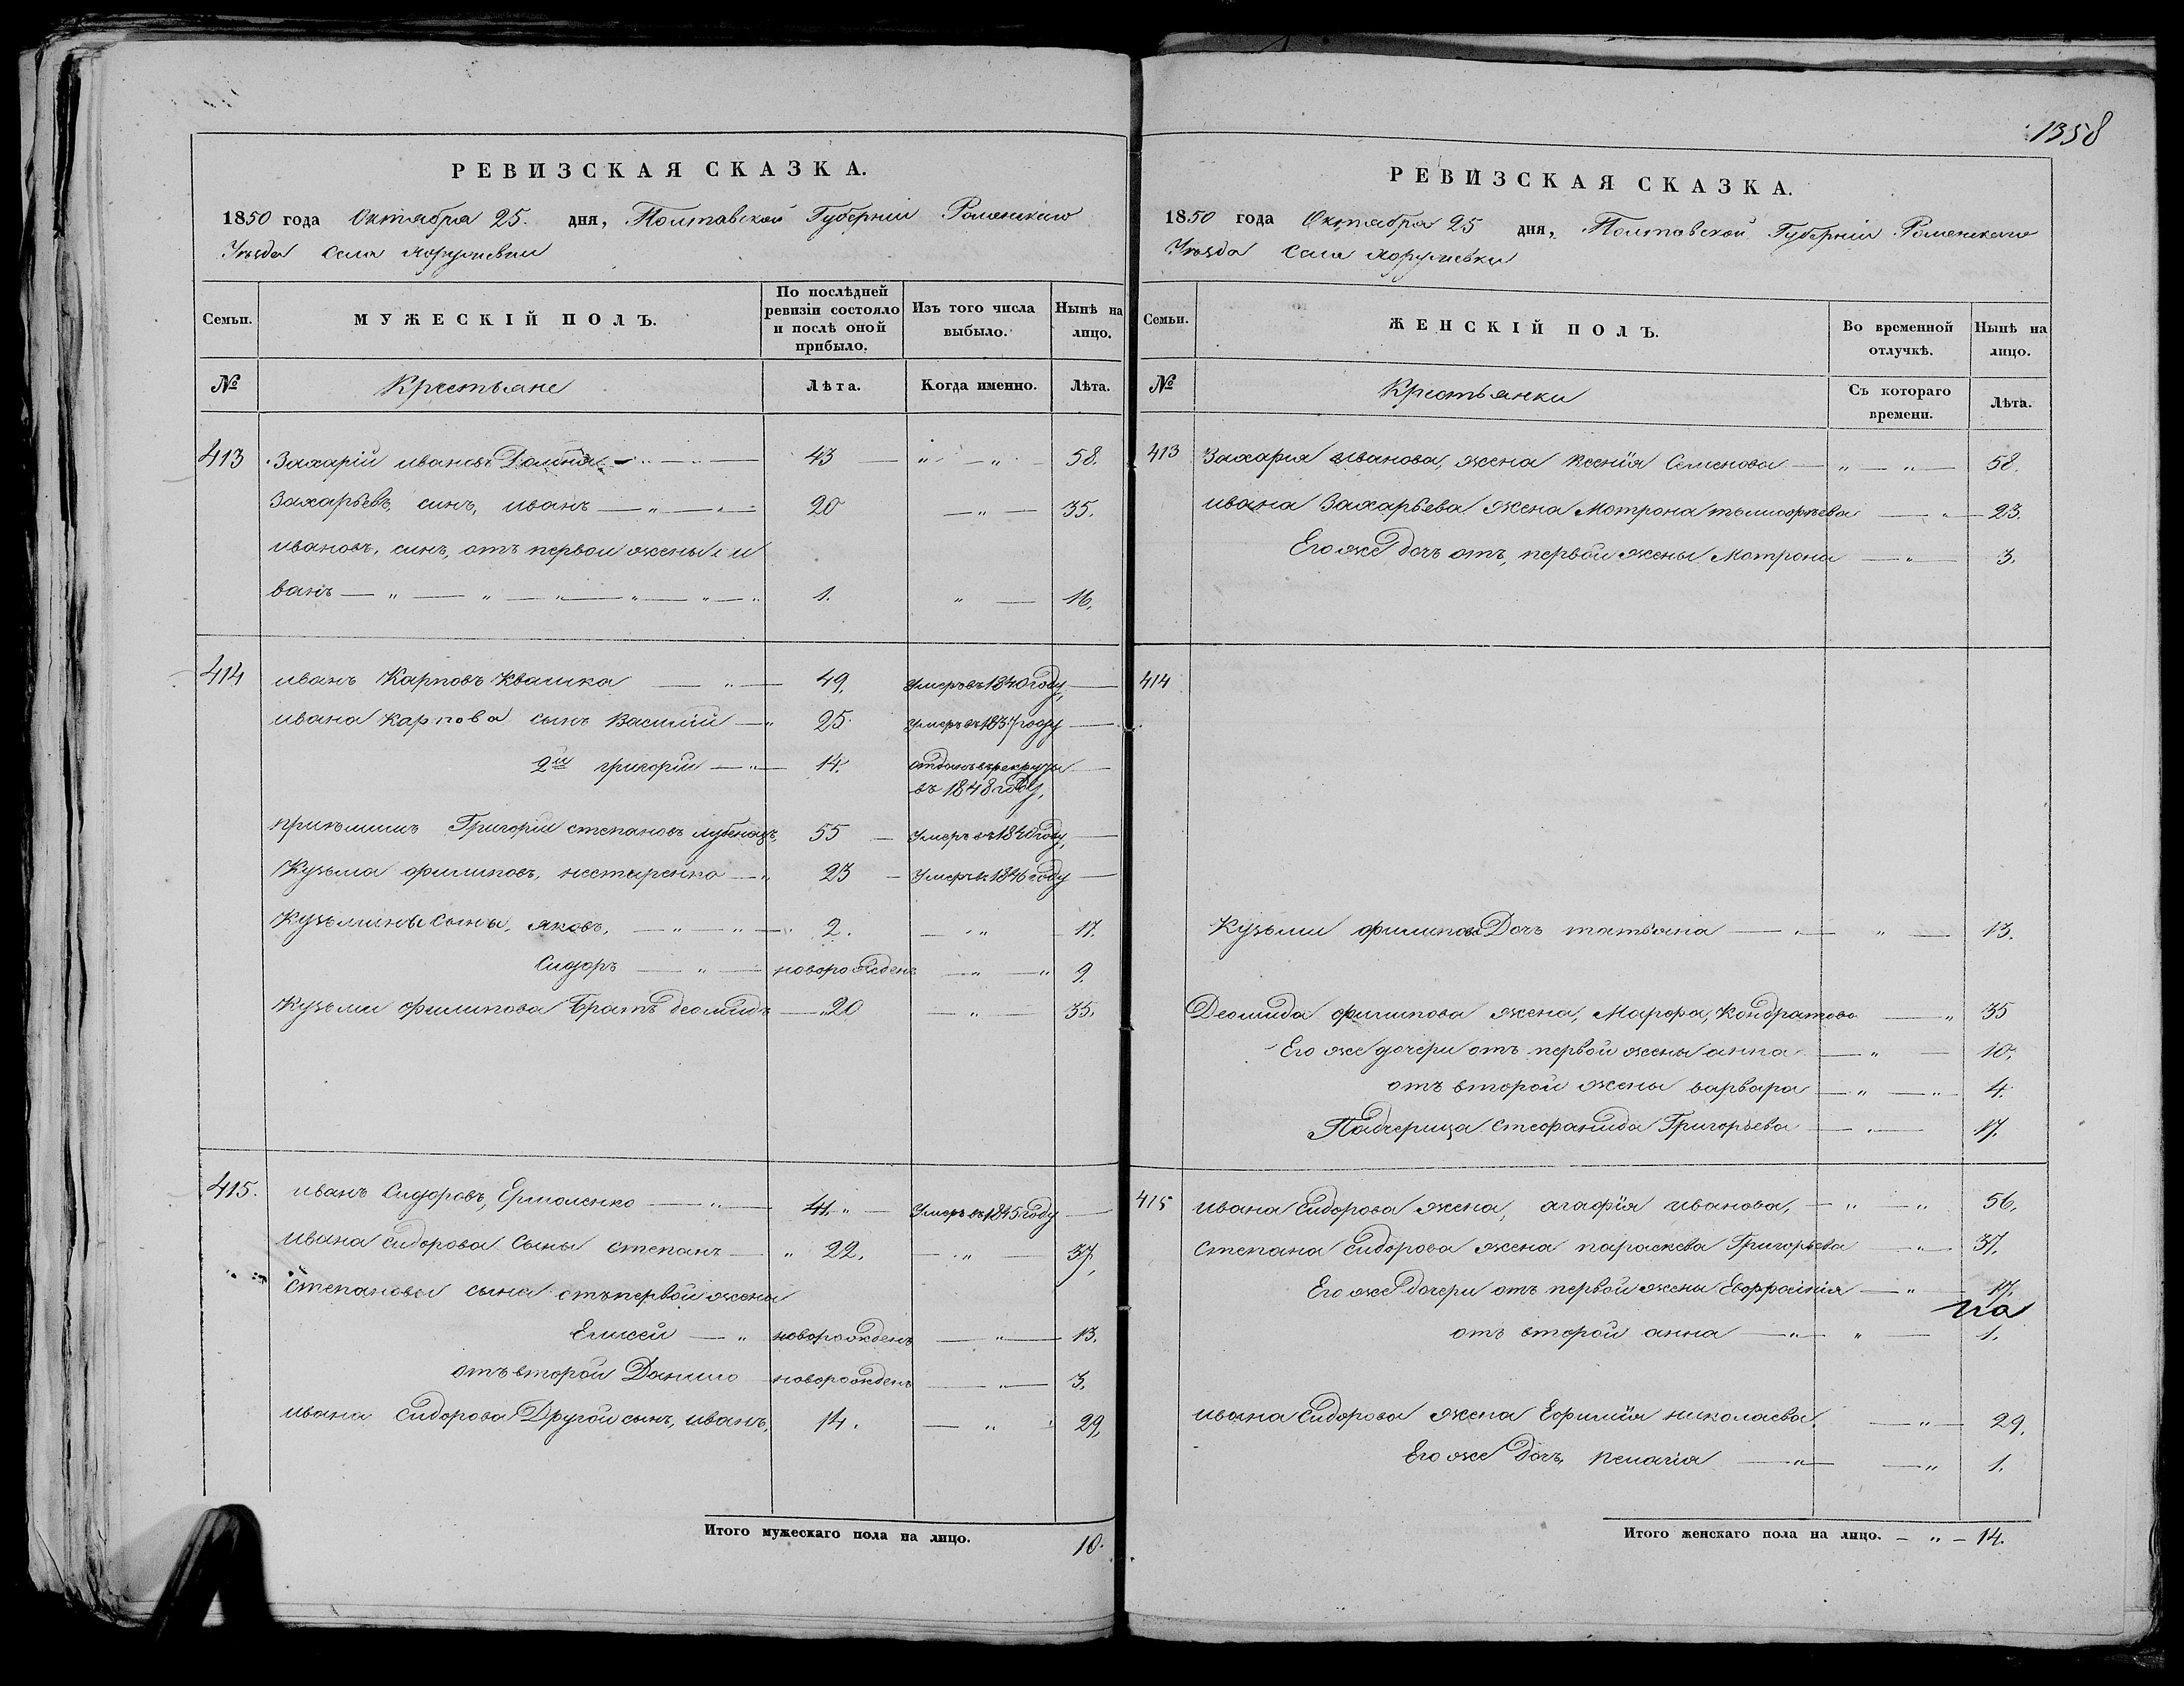 РЕВИЗСКАЯ СКАЗКА.
1850 года Октября 25. дня, Полтавской Губерніи Роменскаго
Уѣзда Села
Семьи. МУЖЕСКІЙ ПОЛЪ. По послѣдней ревизіи состояло и послѣ оной прибыло. Изъ того числа выбыло. Нынѣ на лицо.
№ Крестьяне Лѣта. Когда именно. Лѣта.
413 Захарій ивановъ — „ — 43 — „ — „ — 58.
Захарьевъ, синъ, иванъ — „ — „ 20 — „ — 35.
ивановъ, синъ, отъ первои жены, и
ванъ — „ — „ — „ — „ — „ — „ 1. „ — 16.
414 иванъ Карповъ Квашка — „ — 49, Умеръ въ 1840 году, —
ивана Карпова сынъ Василій — „ 25. Умеръ въ 1837 году —
2й григорій — „ — 14. отданъ въ рекруты —
въ 1848 году,
Григорій степановъ лубенецъ, 55 — Умеръ въ 1840 году, —
Кузьма филиповъ, нестеренко — „ 23 — Умеръ въ 1846 году —
Кузьмины Сыны, яковъ, — „ — „ — 2. — „ 17.
Сидоръ — „ — новорожденъ — „ — „ 9.
Кузьми филипова братъ деомидъ — „ 20 — „ — 35.
415. иванъ Сидоровъ, Ермоленко — „ — 41. „ — Умеръ въ 1845 году —
ивана сидорова Сыны степанъ — „ 22. — „ — 37,
степановы сына отъ первой жены
Елисей — „ новорожденъ — „ — 13.
отъ второй Данило новорожденъ — „ — 3.
ивана сидорова Другой сынъ, иванъ, 14. — „ 29,
Итого мужескаго пола на лицо. 10.
1358
РЕВИЗСКАЯ СКАЗКА.
1850 года Октября 25 дня, Полтавской Губерніи Роменскаго
Уѣзда Села
Семьи. ЖЕНСКІЙ ПОЛЪ. Во временной отлучкѣ. Нынѣ на лицо.
№ Крестьянки Съ котораго времени. Лѣта.
413 Захария иванова, жена Ксенія Семенова — „ — „ — 58.
ивана Захарьева жена Мотрона — „ — 23.
Его же дочъ отъ, первой жены Мотрона — „ — 3.
414
Кузьми филипова Дочъ татьяна — „ — „ — 13.
Деомида филипова жена, Марфа, Кондратова — „ 35
Его же дочери отъ первой жены анна — „ — 10,
отъ второй жены варвара — „ — „ 4.
Падчерица стефанида Григорьева — „ — 17.
415 ивана Сидорова жена, агафія иванова, — „ — „ 56,
степана сидорова жена параскева Григорьева — „ — 37,
Его же дочери отъ первой жены Евфросинія — „ — 17,
на
отъ второй анна — „ — „ — 1,
ивана Сидорова жена Ефимія николаева, — „ — 29,
Его же дочъ, Пелагія — „ — — „ 1.
Итого женскаго пола на лицо. — „ — 14.